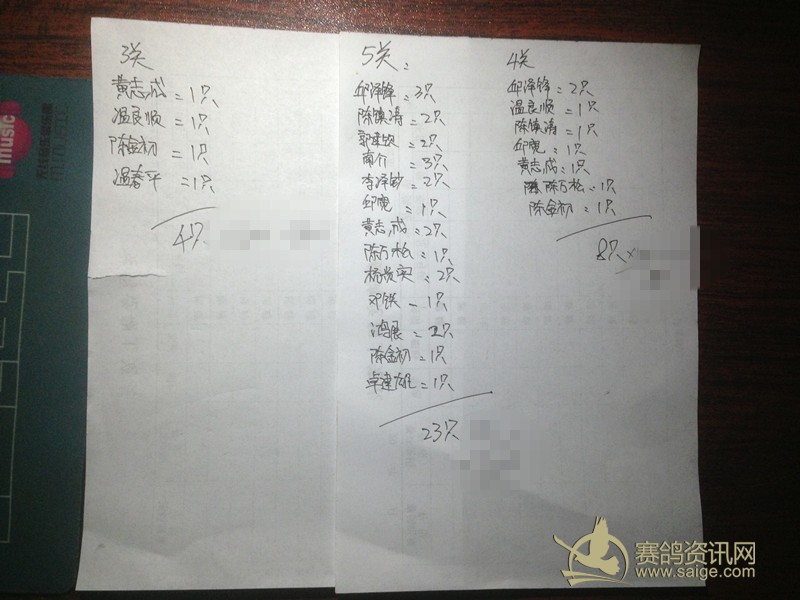 3关
黄志成 = 1只
温良顺 = 1只
陈金初 = 1只
温春平 = 1只
4只
5关:
邱泽锋 = 3只
陈镇涛 = 2只
= 2只
南介 = 3只
李泽 = 2只
邱宽 = 1只
黄志成 = 2只
陈万松 = 1只
杨 = 2只
邓铁 - 1只
鸿展 = 只
陈金初 = 1只
卓建雄 = 1只
23只
4关
邱泽锋 = 2只
温良顺 = 1只
陈镇涛 = 1只
邱宽 = 1只
黄志成 = 1只
陈万松 = 1只
陈金初 = 1只
8只x
music
赛鸽资讯网
www.saige.com